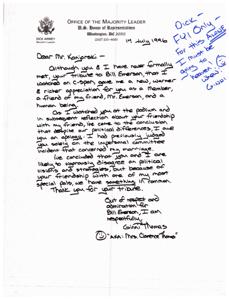 OFFICE OF THE MAJORITY LEADER
U.S. House of Representatives
Washington, DC 20515
DICK ARMEY
Dick -
FYI Only -
14 July 1996
Dear Mr. Kanjorski -
Although you & I have never formally
met, your tribute to Bill Emerson, that I
watched on c-span, gave me a new, warmer
& richer appreciation for you as a Member,
a friend of my friend, Mr. Emerson, and a
human being.
As I watched you at the podium and
in subsequent reflection about your friendship
with my friend, I've come to the conclusion
that despite our political differences, I owe
you an apology. I had previously judged
you solely on the impersonal committee
incidents that concerned my marriage.
I've concluded that you and I are
likely to vigorously disagree on political
visions and strategies, but because of
your friendship with one of my most
special pals, we have something in common.
Thank you for your tribute.
Out of respect and
admiration for
Bill Emerson, I am
respectfully,
Ginni Thomas
"AKA: Mrs. Clarence Thomas"